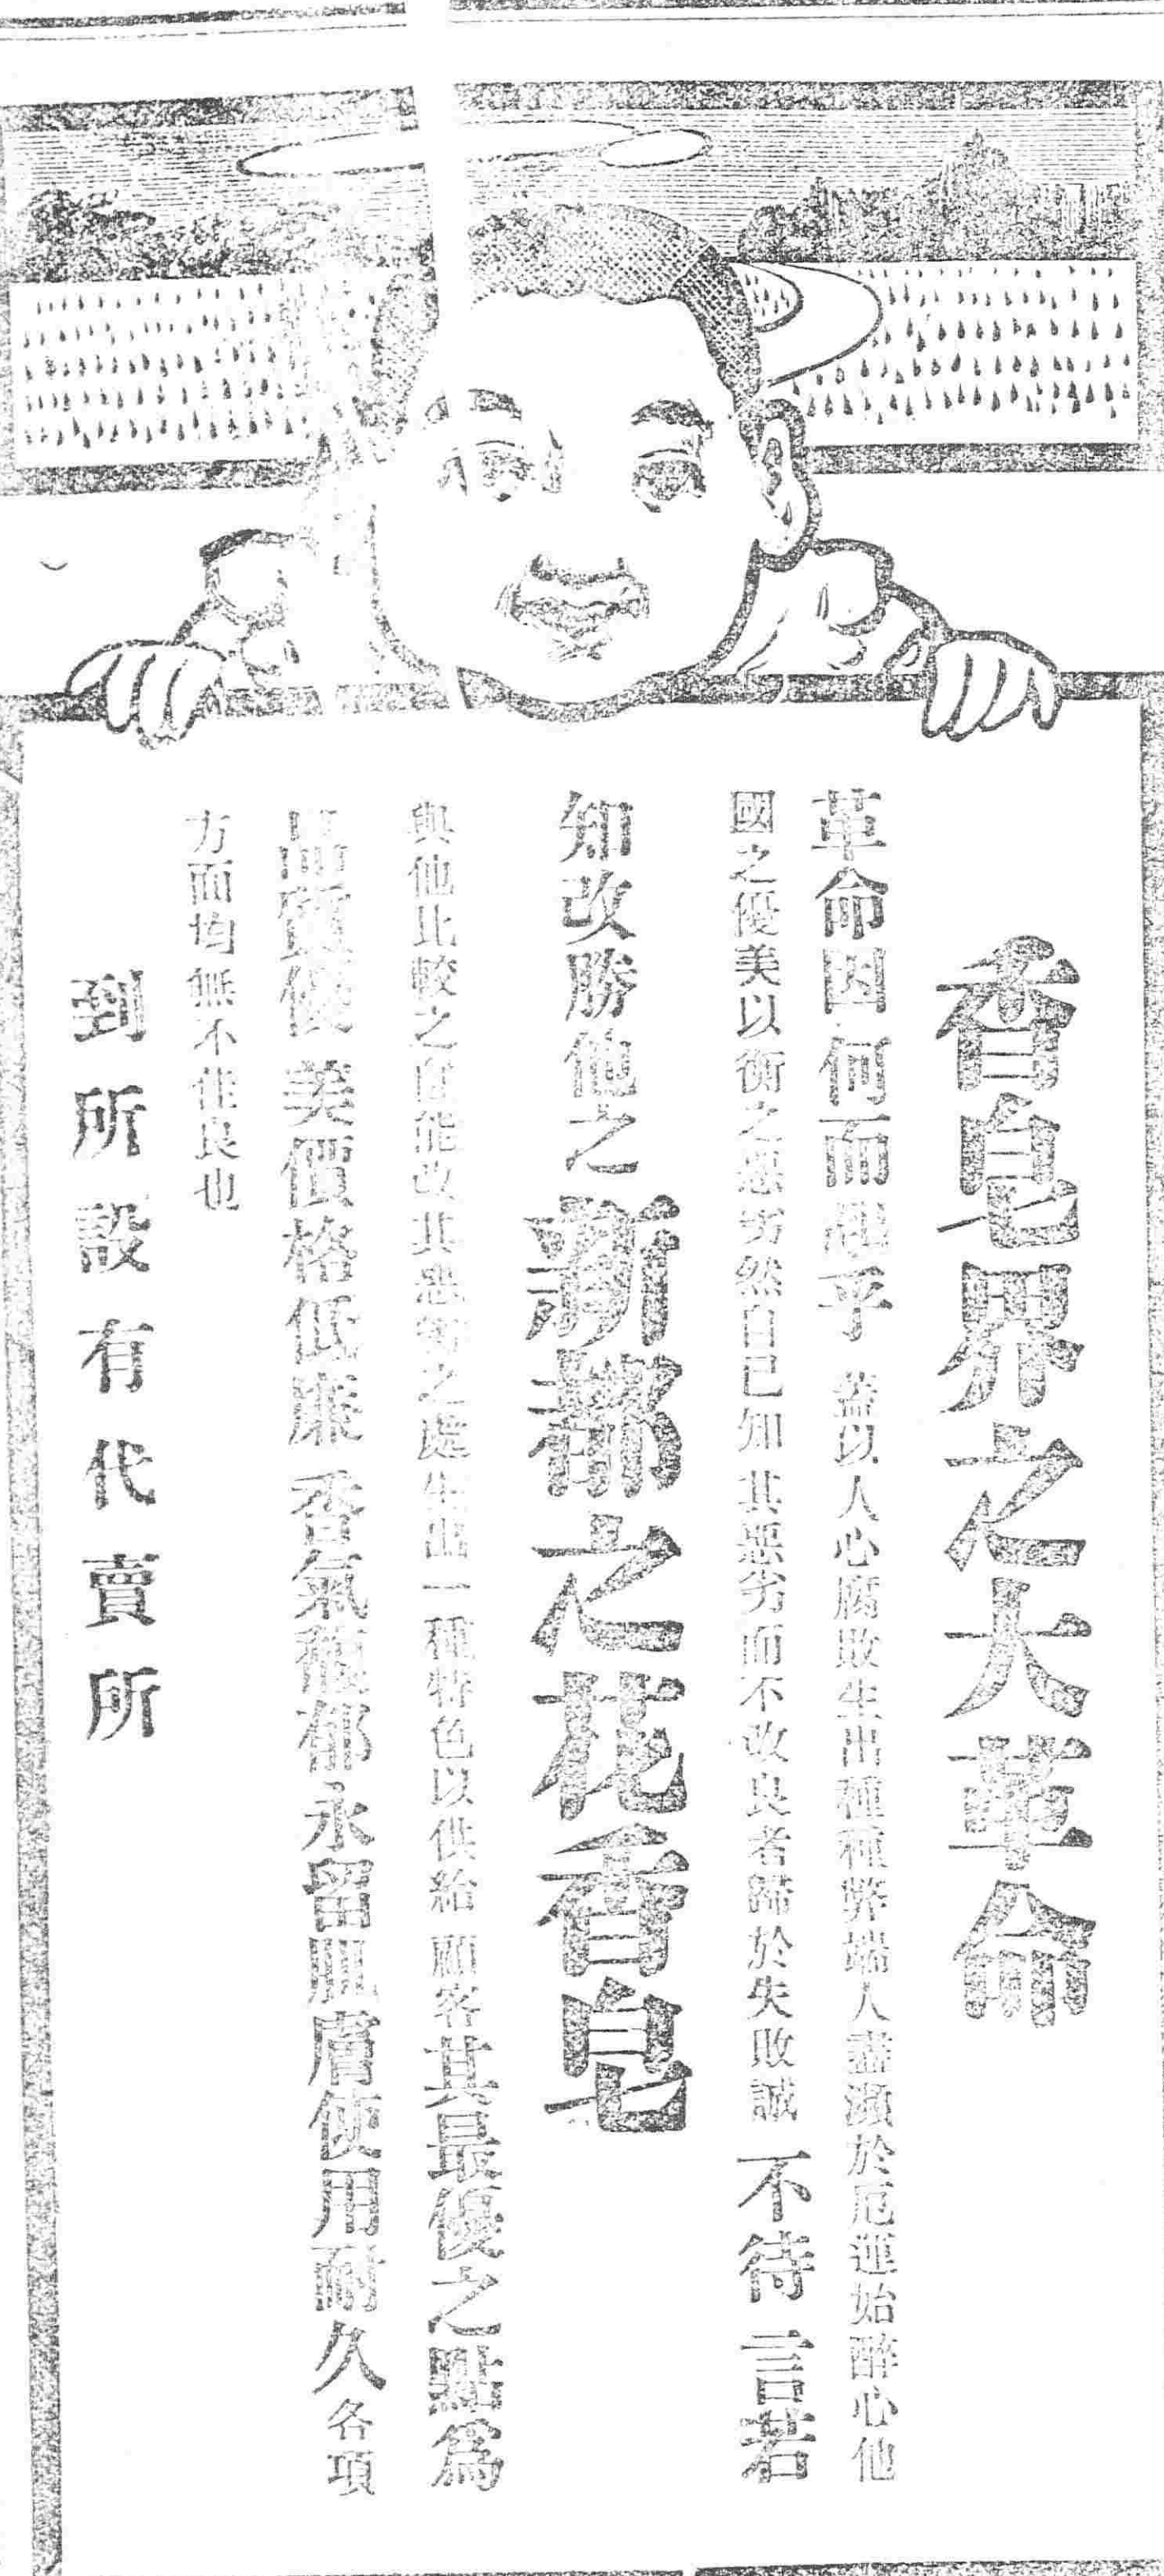 香皂界之大革命
革命因何而起乎 蓋以人心腐敗生出種種弊端人盡瀕於厄運始醉心他
國之優美以衡之惡劣然自己知其惡劣而不改良者歸於失敗誠不待言若
知改勝他之新都之花香皂
與他比較之自能改其惡劣之處生出一種特色以供給 顧客其最優之點為
品質優美價格低廉 香氣馥郁永留肌膚使用耐久各項
方面均無不佳良也
到所設有代賣所